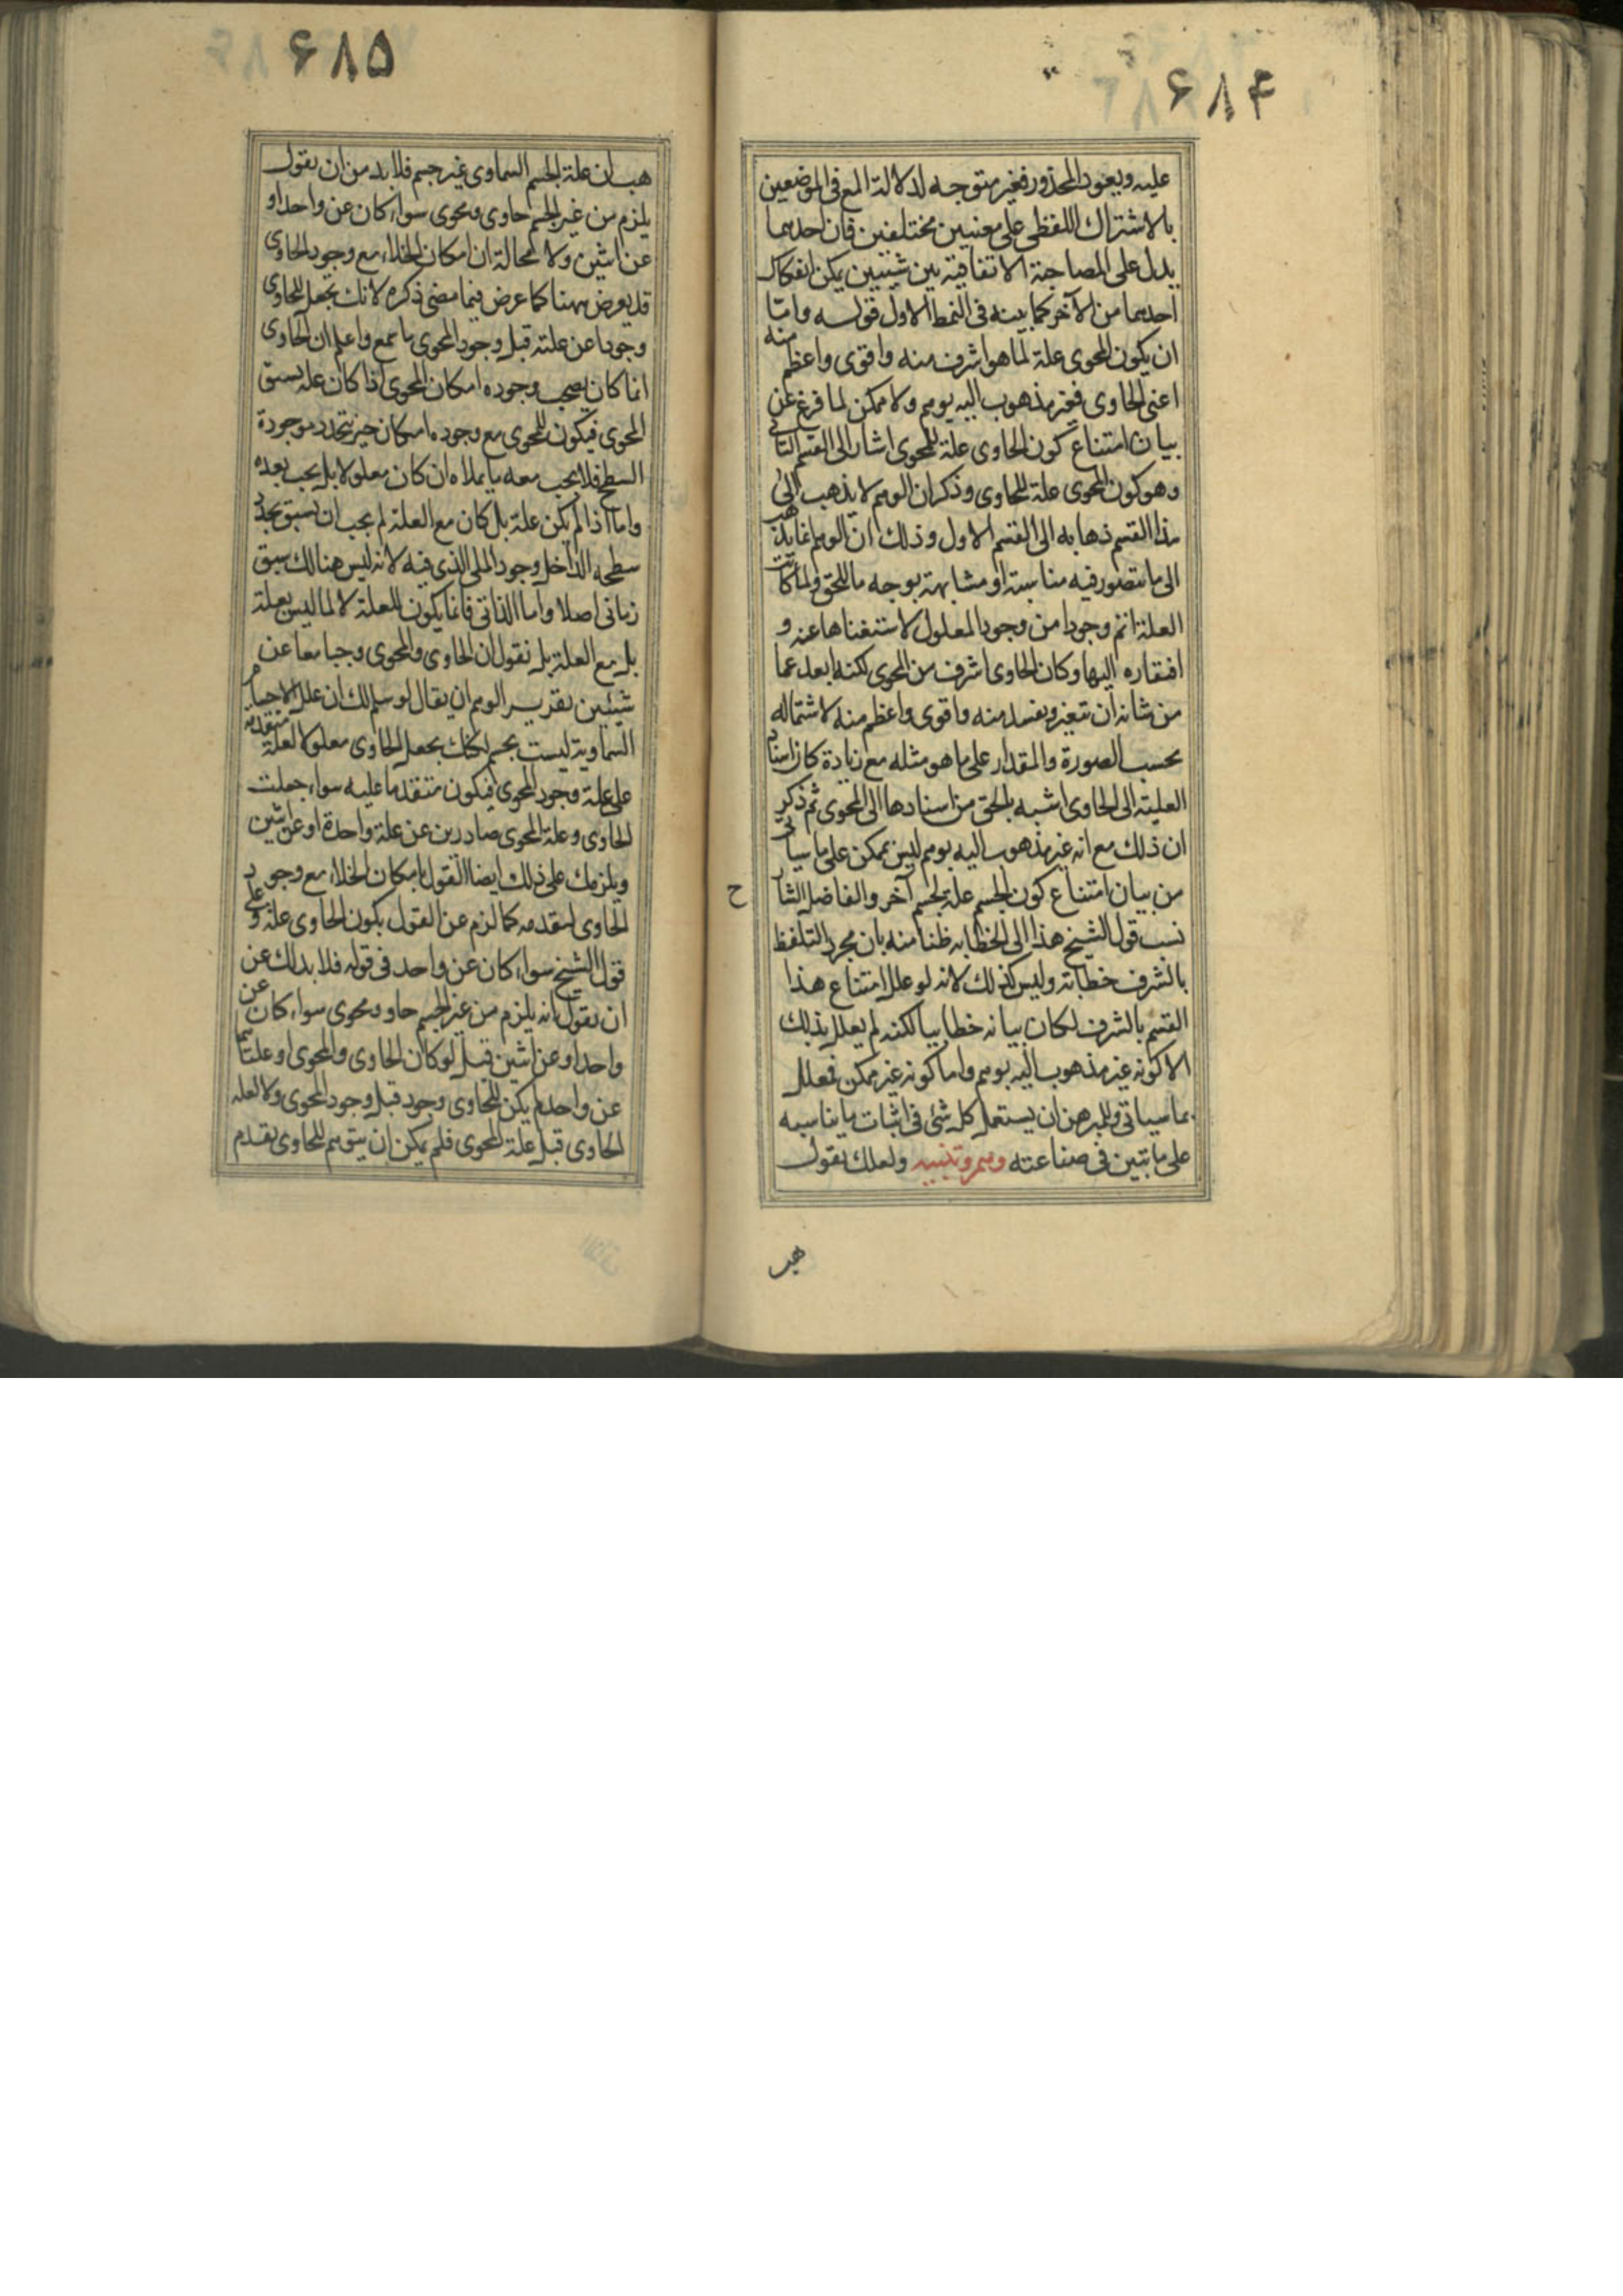 ۶۸۴
عليه ويعود المحذور فغير متوجه لدلالة المع فى الموضعين
بالاشتراك اللفظى على معنيين مختلفين فان احدهما
يدل على المصاحبة الاتفاقية بين شيئين يمكن انفكاك
احدهما من الآخر كما بينه فى النمط الاول قوله واما
ان يكون المحوى علة لما هو اشرف منه واقوى واعظم منه
اعنى الحاوى فغير مذهوب اليه بوهم ولا ممكن لما فرغ عن
بيان امتناع كون الحاوى علة للمحوى اشار الى القسم الثانى
وهو كون المحوى علة للحاوى وذكر ان الوهم لا يذهب الى
هذا القسم ذهابه الى القسم الاول وذلك ان الوهم انما يذهب
الى ما يتصور فيه مناسبة او مشابهة بوجه ما للحق ولما كانت
العلة اتم وجودا من وجود المعلول لاستغناها عنه و
افتقاره اليها وكان الحاوى اشرف من المحوى لكنه ابعد عما
من شانه ان يتغير ويفسد منه واقوى واعظم منه لاشتماله
بحسب الصورة والمقدار على ما هو مثله مع زيادة كان اسناد
العلية الى الحاوى اشبه بالحق من اسنادها الى المحوى ثم ذكر
ان ذلك مع انه غير مذهوب اليه بوهم ليس بممكن على ما سياتى
من بيان امتناع كون الجسم علة لجسم آخر والفاضل الشا
ح
نسب قول الشيخ هذا الى الخطابه ظنا منه بان مجرد التلفظ
بالشرف خطابة وليس كذلك لانه لو علل امتناع هذا
القسم بالشرف لكان بيانه خطابيا لكنه لم يعلل بذلك
الا كونه غير مذهوب اليه بوهم واما كونه غير ممكن فعلل
بما سياتى وللمبرهن ان يستعمل كل شئ فى اثبات ما يناسبه
على ما تبين فى صناعته وهم وتنبيه ولعلك تقول
هب
۶۸۵
هب ان علة الجسم السماوى غير جسم فلابد من ان تقول
يلزم من غير الجسم حاوى ومحوى سواء كان عن واحد او
عن اثنين ولا محالة ان امكان الخلاء مع وجود الحاوى
قد يعرض ههنا كما عرض فيما مضى ذكره لانك تجعل للحاوى
وجودا عن علته قبل وجود المحوى ما سمع واعلم ان الحاوى
انما كان يصحب وجوده امكان المحوى اذا كان علة يسبق
المحوى فيكون للمحوى مع وجوده امكان حين يتحدد موجودة
السطح فلا يجب معه ما يملاه ان كان معلولا بل يجب بعده
واما اذا لم يكن علة بل كان مع العلة لم يجب ان يسبق تحدد
سطحه الداخل وجود الملى الذى فيه لانه ليس هنالك سبق
زمانى اصلا واما الذاتى فانما يكون للعلة لا لما ليس بعلة
بل مع العلة بل نقول ان الحاوى والمحوى وجبا معا عن
شيئين تقرير الوهم ان يقال لو سلم لك ان علل الاجسام
السماوية ليست بجسم لكنك تجعل الحاوى معلولا لعلة متقدمة
على علة وجود المحوى فيكون متقدما عليه سواء جعلت
الحاوى وعلة المحوى صادرين عن علة واحدة او عن اثنين
ويلزمك على ذلك ايضا القول بامكان الخلاء مع وجود
الحاوى لتقدمه كما لزم عن القول بكون الحاوى علة وعلى
قول الشيخ سواء كان عن واحد فى قوله فلابد لك عن
ان تقول انه يلزم من غير الجسم حاو ومحوى سواء كان عن
واحد او عن اثنين قيل لو كان الحاوى والمحوى او علتاهما
عن واحد لم يكن للحاوى وجود قبل وجود المحوى ولا لعله
الحاوى قبل علة المحوى فلم يمكن ان يتوهم للحاوى تقدم